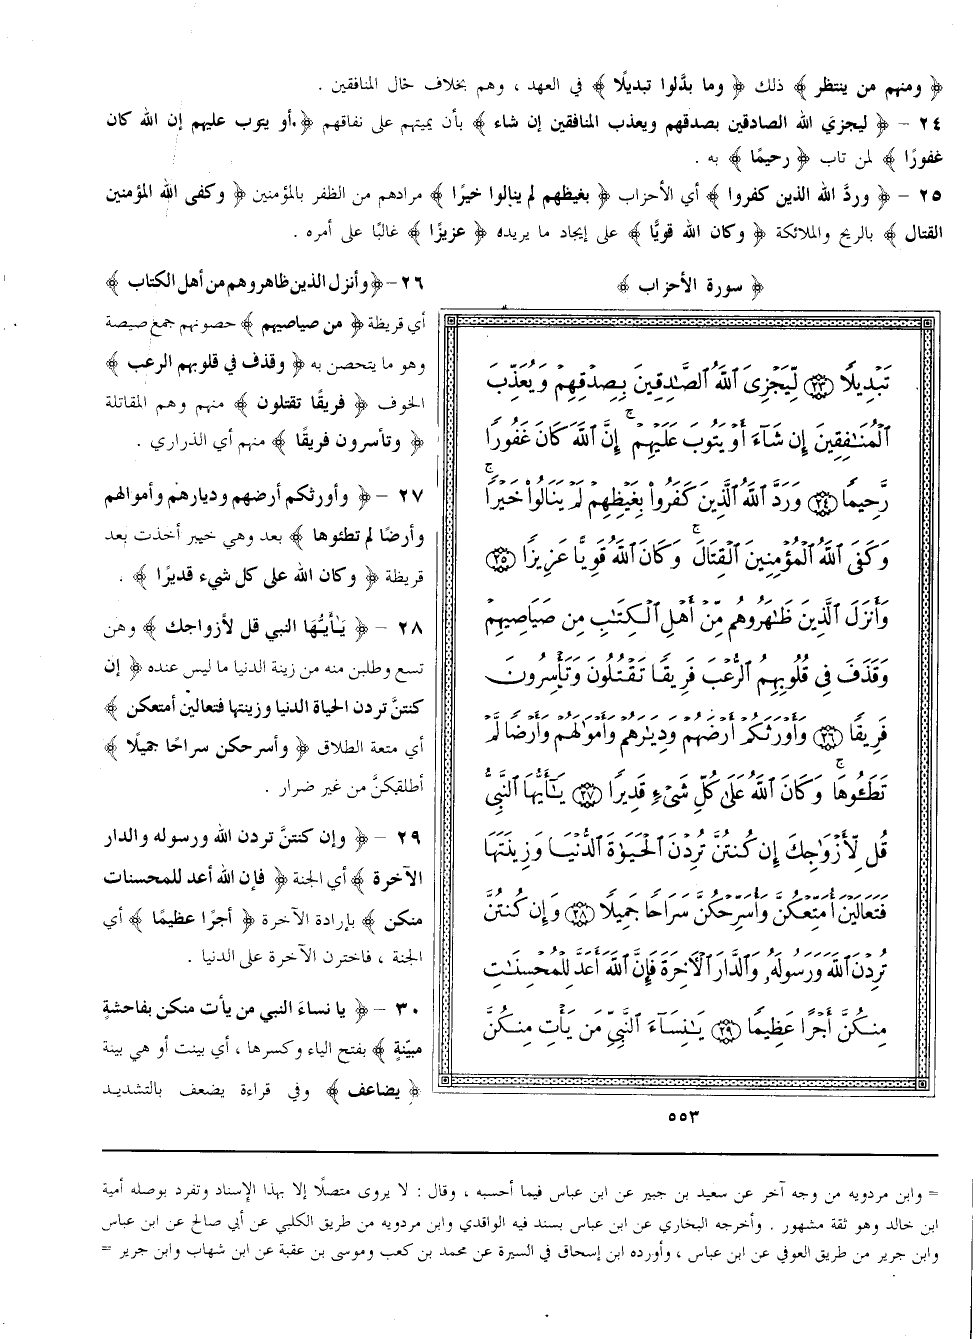 ﴿ ومنهم من ينتظر ﴾ ذلك ﴿ وما بدَّلوا تبديلًا ﴾ في العهد ، وهم بخلاف حال المنافقين .
٢٤ – ﴿ ليجزي الله الصادقين بصدقهم ويعذب المنافقين إن شاء ﴾ بأن يميتهم على نفاقهم ﴿ أو يتوب عليهم إن الله كان
غفورًا ﴾ لمن تاب ﴿ رحيمًا ﴾ به .
٢٥ – ﴿ وردَّ الله الذين كفروا ﴾ أي الأحزاب ﴿ بغيظهم لم ينالوا خيرًا ﴾ مرادهم من الظفر بالمؤمنين ﴿ وكفى الله المؤمنين
القتال ﴾ بالريح والملائكة ﴿ وكان الله قويًّا ﴾ على إيجاد ما يريده ﴿ عزيزًا ﴾ غالبًا على أمره .
﴿ سورة الأحزاب ﴾
تَبْدِيلًا ٢٣ لِّيَجْزِىَ ٱللَّهُ ٱلصَّٰدِقِينَ بِصِدْقِهِمْ وَيُعَذِّبَ
ٱلْمُنَٰفِقِينَ إِن شَآءَ أَوْ يَتُوبَ عَلَيْهِمْ ۚ إِنَّ ٱللَّهَ كَانَ غَفُورًا
رَّحِيمًا ٢٤ وَرَدَّ ٱللَّهُ ٱلَّذِينَ كَفَرُوا۟ بِغَيْظِهِمْ لَمْ يَنَالُوا۟ خَيْرًا ۚ
وَكَفَى ٱللَّهُ ٱلْمُؤْمِنِينَ ٱلْقِتَالَ ۚ وَكَانَ ٱللَّهُ قَوِيًّا عَزِيزًا ٢٥
وَأَنزَلَ ٱلَّذِينَ ظَٰهَرُوهُم مِّنْ أَهْلِ ٱلْكِتَٰبِ مِن صَيَاصِيهِمْ
وَقَذَفَ فِى قُلُوبِهِمُ ٱلرُّعْبَ فَرِيقًا تَقْتُلُونَ وَتَأْسِرُونَ
فَرِيقًا ٢٦ وَأَوْرَثَكُمْ أَرْضَهُمْ وَدِيَٰرَهُمْ وَأَمْوَٰلَهُمْ وَأَرْضًا لَّمْ
تَطَـُٔوهَا ۚ وَكَانَ ٱللَّهُ عَلَىٰ كُلِّ شَىْءٍ قَدِيرًا ٢٧ يَٰٓأَيُّهَا ٱلنَّبِىُّ
قُل لِّأَزْوَٰجِكَ إِن كُنتُنَّ تُرِدْنَ ٱلْحَيَوٰةَ ٱلدُّنْيَا وَزِينَتَهَا
فَتَعَالَيْنَ أُمَتِّعْكُنَّ وَأُسَرِّحْكُنَّ سَرَاحًا جَمِيلًا ٢٨ وَإِن كُنتُنَّ
تُرِدْنَ ٱللَّهَ وَرَسُولَهُۥ وَٱلدَّارَ ٱلْءَاخِرَةَ فَإِنَّ ٱللَّهَ أَعَدَّ لِلْمُحْسِنَٰتِ
مِنكُنَّ أَجْرًا عَظِيمًا ٢٩ يَٰنِسَآءَ ٱلنَّبِىِّ مَن يَأْتِ مِنكُنَّ
٥٥٣
٢٦ – ﴿ وأنزل الذين ظاهروهم من أهل الكتاب ﴾
أي قريظة ﴿ من صياصيهم ﴾ حصونهم جمع صيصة
وهو ما يتحصن به ﴿ وقذف في قلوبهم الرعب ﴾
الخوف ﴿ فريقًا تقتلون ﴾ منهم وهم المقاتلة
﴿ وتأسرون فريقًا ﴾ منهم أي الذراري .
٢٧ – ﴿ وأورثكم أرضهم وديارهم وأموالهم
وأرضًا لم تطئوها ﴾ بعد وهي خيبر أخذت بعد
قريظة ﴿ وكان الله على كل شيء قديرًا ﴾ .
٢٨ – ﴿ يَأيُّها النبي قل لأزواجك ﴾ وهن
تسع وطلبن منه من زينة الدنيا ما ليس عنده ﴿ إن
كنتنَّ تردن الحياة الدنيا وزينتها فتعالين أمتعكن ﴾
أي متعة الطلاق ﴿ وأسرحكن سراحًا جميلًا ﴾
أطلقكنَّ من غير ضرار .
٢٩ – ﴿ وإن كنتنَّ تردن الله ورسوله والدار
الآخرة ﴾ أي الجنة ﴿ فإن الله أعد للمحسنات
منكن ﴾ بإرادة الآخرة ﴿ أجرًا عظيمًا ﴾ أي
الجنة ، فاخترن الآخرة على الدنيا .
٣٠ – ﴿ يا نساءَ النبي من يأت منكن بفاحشةٍ
مبيّنةٍ ﴾ بفتح الياء وكسرها ، أي بينت أو هي بينة
﴿ يضاعف ﴾ وفي قراءة يضعف بالتشديد
= وابن مردويه من وجه آخر عن سعيد بن جبير عن ابن عباس فيما أحسبه ، وقال : لا يروى متصلًا إلا بهذا الإسناد وتفرد بوصله أمية
ابن خالد وهو ثقة مشهور . وأخرجه البخاري عن ابن عباس بسند فيه الواقدي وابن مردويه من طريق الكلبي عن أبي صالح عن ابن عباس
وابن جرير من طريق العوفي عن ابن عباس ، وأورده ابن إسحاق في السيرة عن محمد بن كعب وموسى بن عقبة عن ابن شهاب وابن جرير =